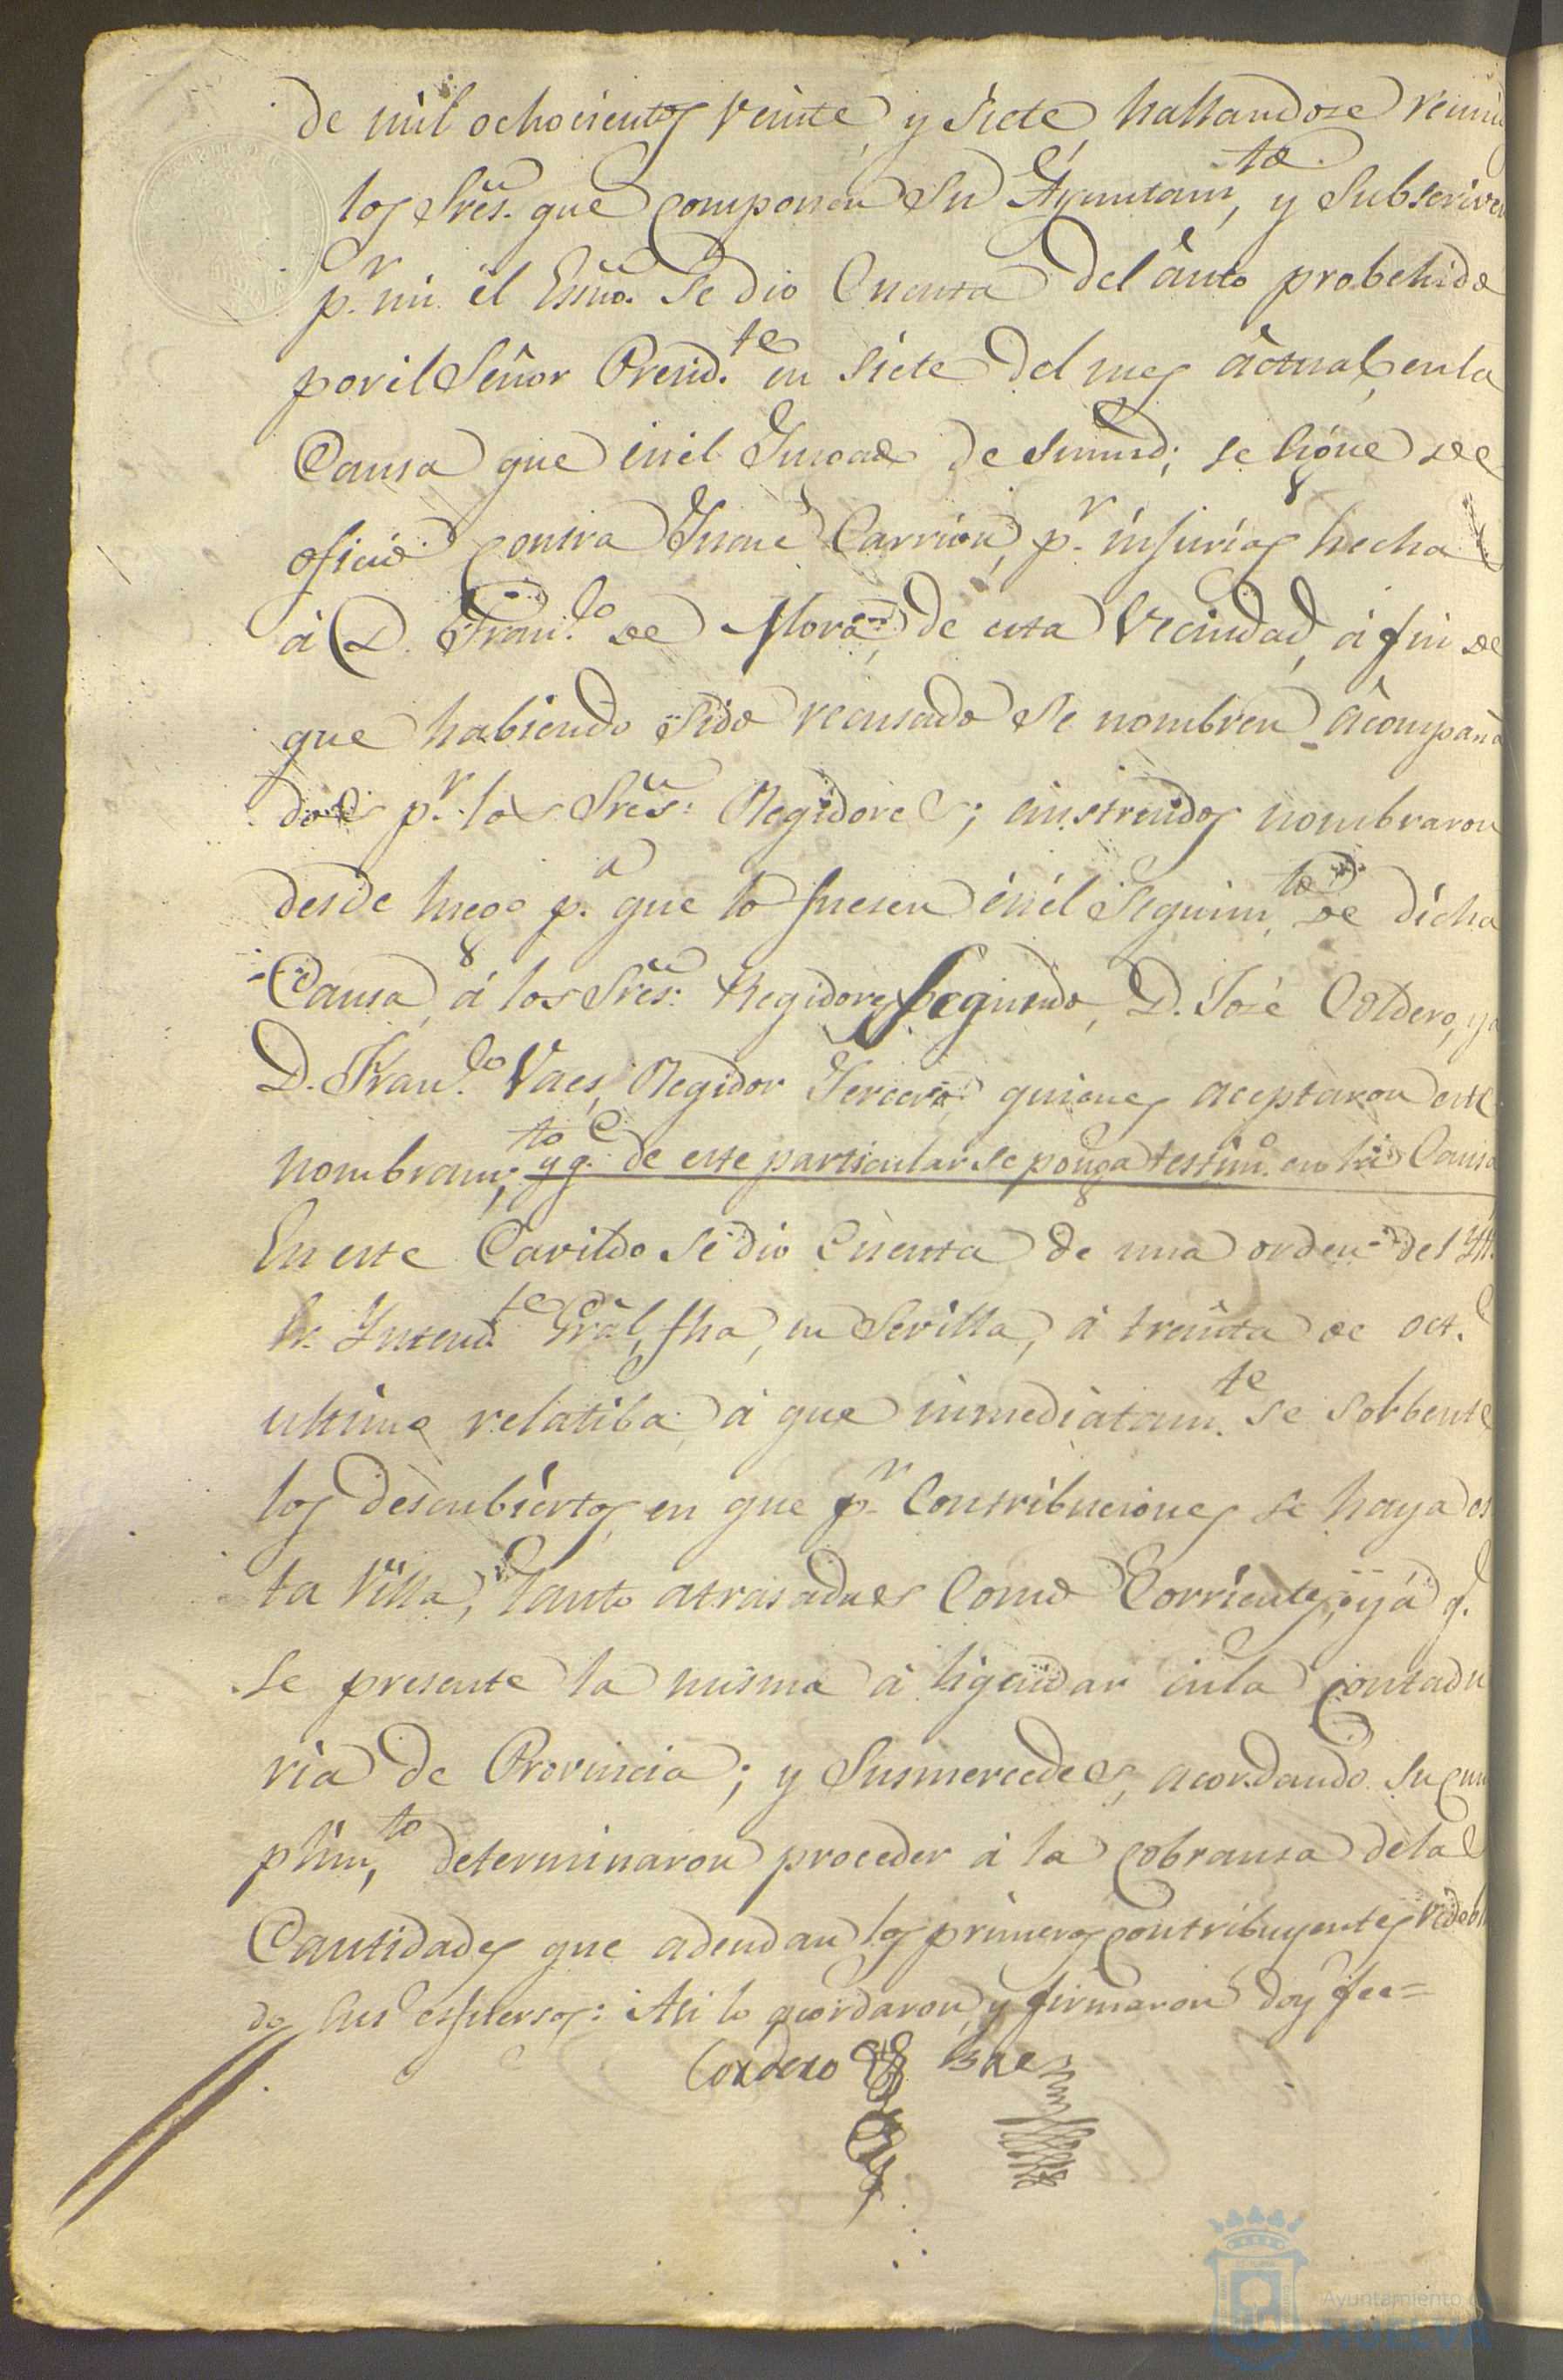 de mil ochocientos veinte y siete hallandose reuni
los Sres. que componen su Ayuntamto, y Subscriven
pr. mi el Essno. Se dio Cuenta del auto probehido
por el Señor Presidte en siete del mes actual, en la
Causa que en el Jusgado de Sumrd; se sigue de
oficio contra José Carrion, pr. injurias hecha
á D. Franco de Mora, de esta Vecindad, á fin de
que habiendo sido recusado se nombren acompaña
dos pr. los Sres: Regidores; é instruidos nombraron
desde luego pa. que lo fuesen en el Seguimto de dicha
Causa, á los Sres. Regidores segundo, D. José Coldero, y a
D. Franco Vaes, Regidor Tercero, quienes aceptaron este
nombramto; y q. de este particular se ponga testimo. en la Causa
En este Cavildo se dio Cuenta de una orden del Yll.
Sr. Yntendte Gral, fha, en Sevilla, á treinta de oct.e
ultimo relatiba á que inmediatamte se solbente
los descubiertos en que pr. Contribuciones se haya es
ta Villa, tanto atrasadas como Corrientes, y á q.
se presente la misma á liquidar en la contadu
ria de Provincia; y Susmercedes, acordando su cum
plimto, determinaron proceder á la cobransa de las
Cantidades que adeudan los primeros contribuyentes redobla
do sus esfuersos: Asi lo acordaron, y firmaron doy fee=
Cordero Baes
Ayuntamiento de
HUELVA